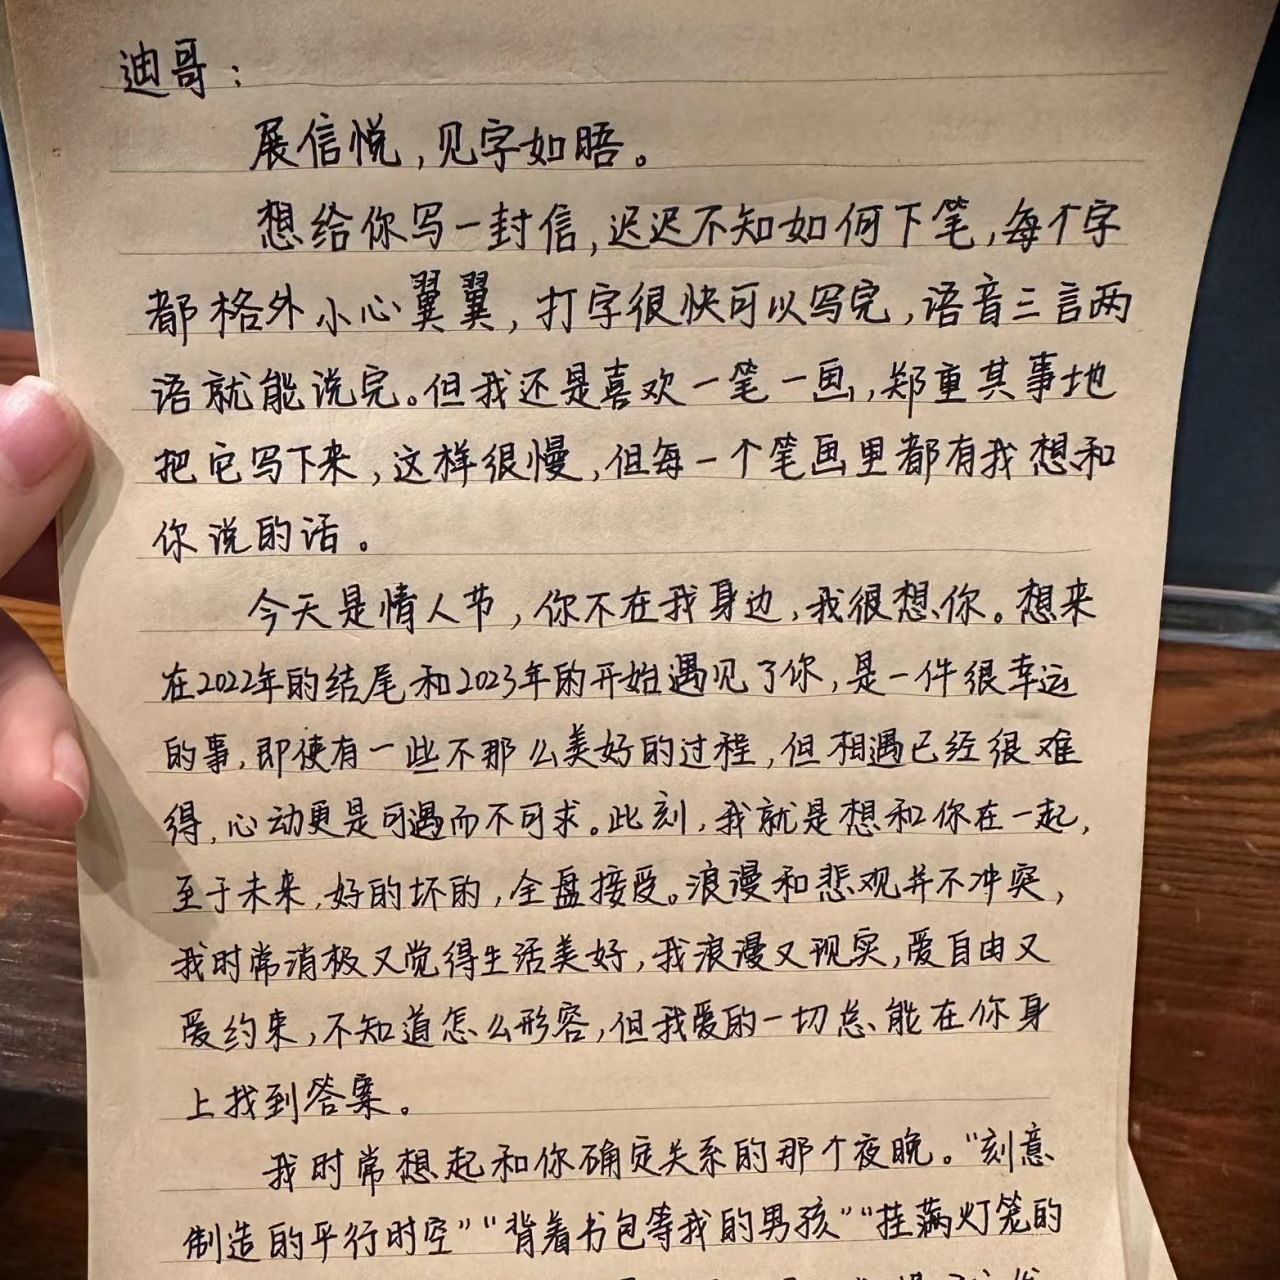 迪哥：
展信悦，见字如晤。
想给你写一封信，迟迟不知如何下笔，每个字
都格外小心翼翼，打字很快可以写完，语音三言两
语就能说完。但我还是喜欢一笔一画，郑重其事地
把它写下来，这样很慢，但每一个笔画里都有我想和
你说的话。
今天是情人节，你不在我身边，我很想你。想来
在2022年的结尾和2023年的开始遇见了你，是一件很幸运
的事，即使有一些不那么美好的过程，但相遇已经很难
得，心动更是可遇而不可求。此刻，我就是想和你在一起，
至于未来，好的坏的，全盘接受。浪漫和悲观并不冲突，
我时常消极又觉得生活美好，我浪漫又现实，爱自由又
爱约束，不知道怎么形容，但我爱的一切总能在你身
上找到答案。
我时常想起和你确定关系的那个夜晚。“刻意
制造的平行时空”“背着书包等我的男孩”“挂满灯笼的